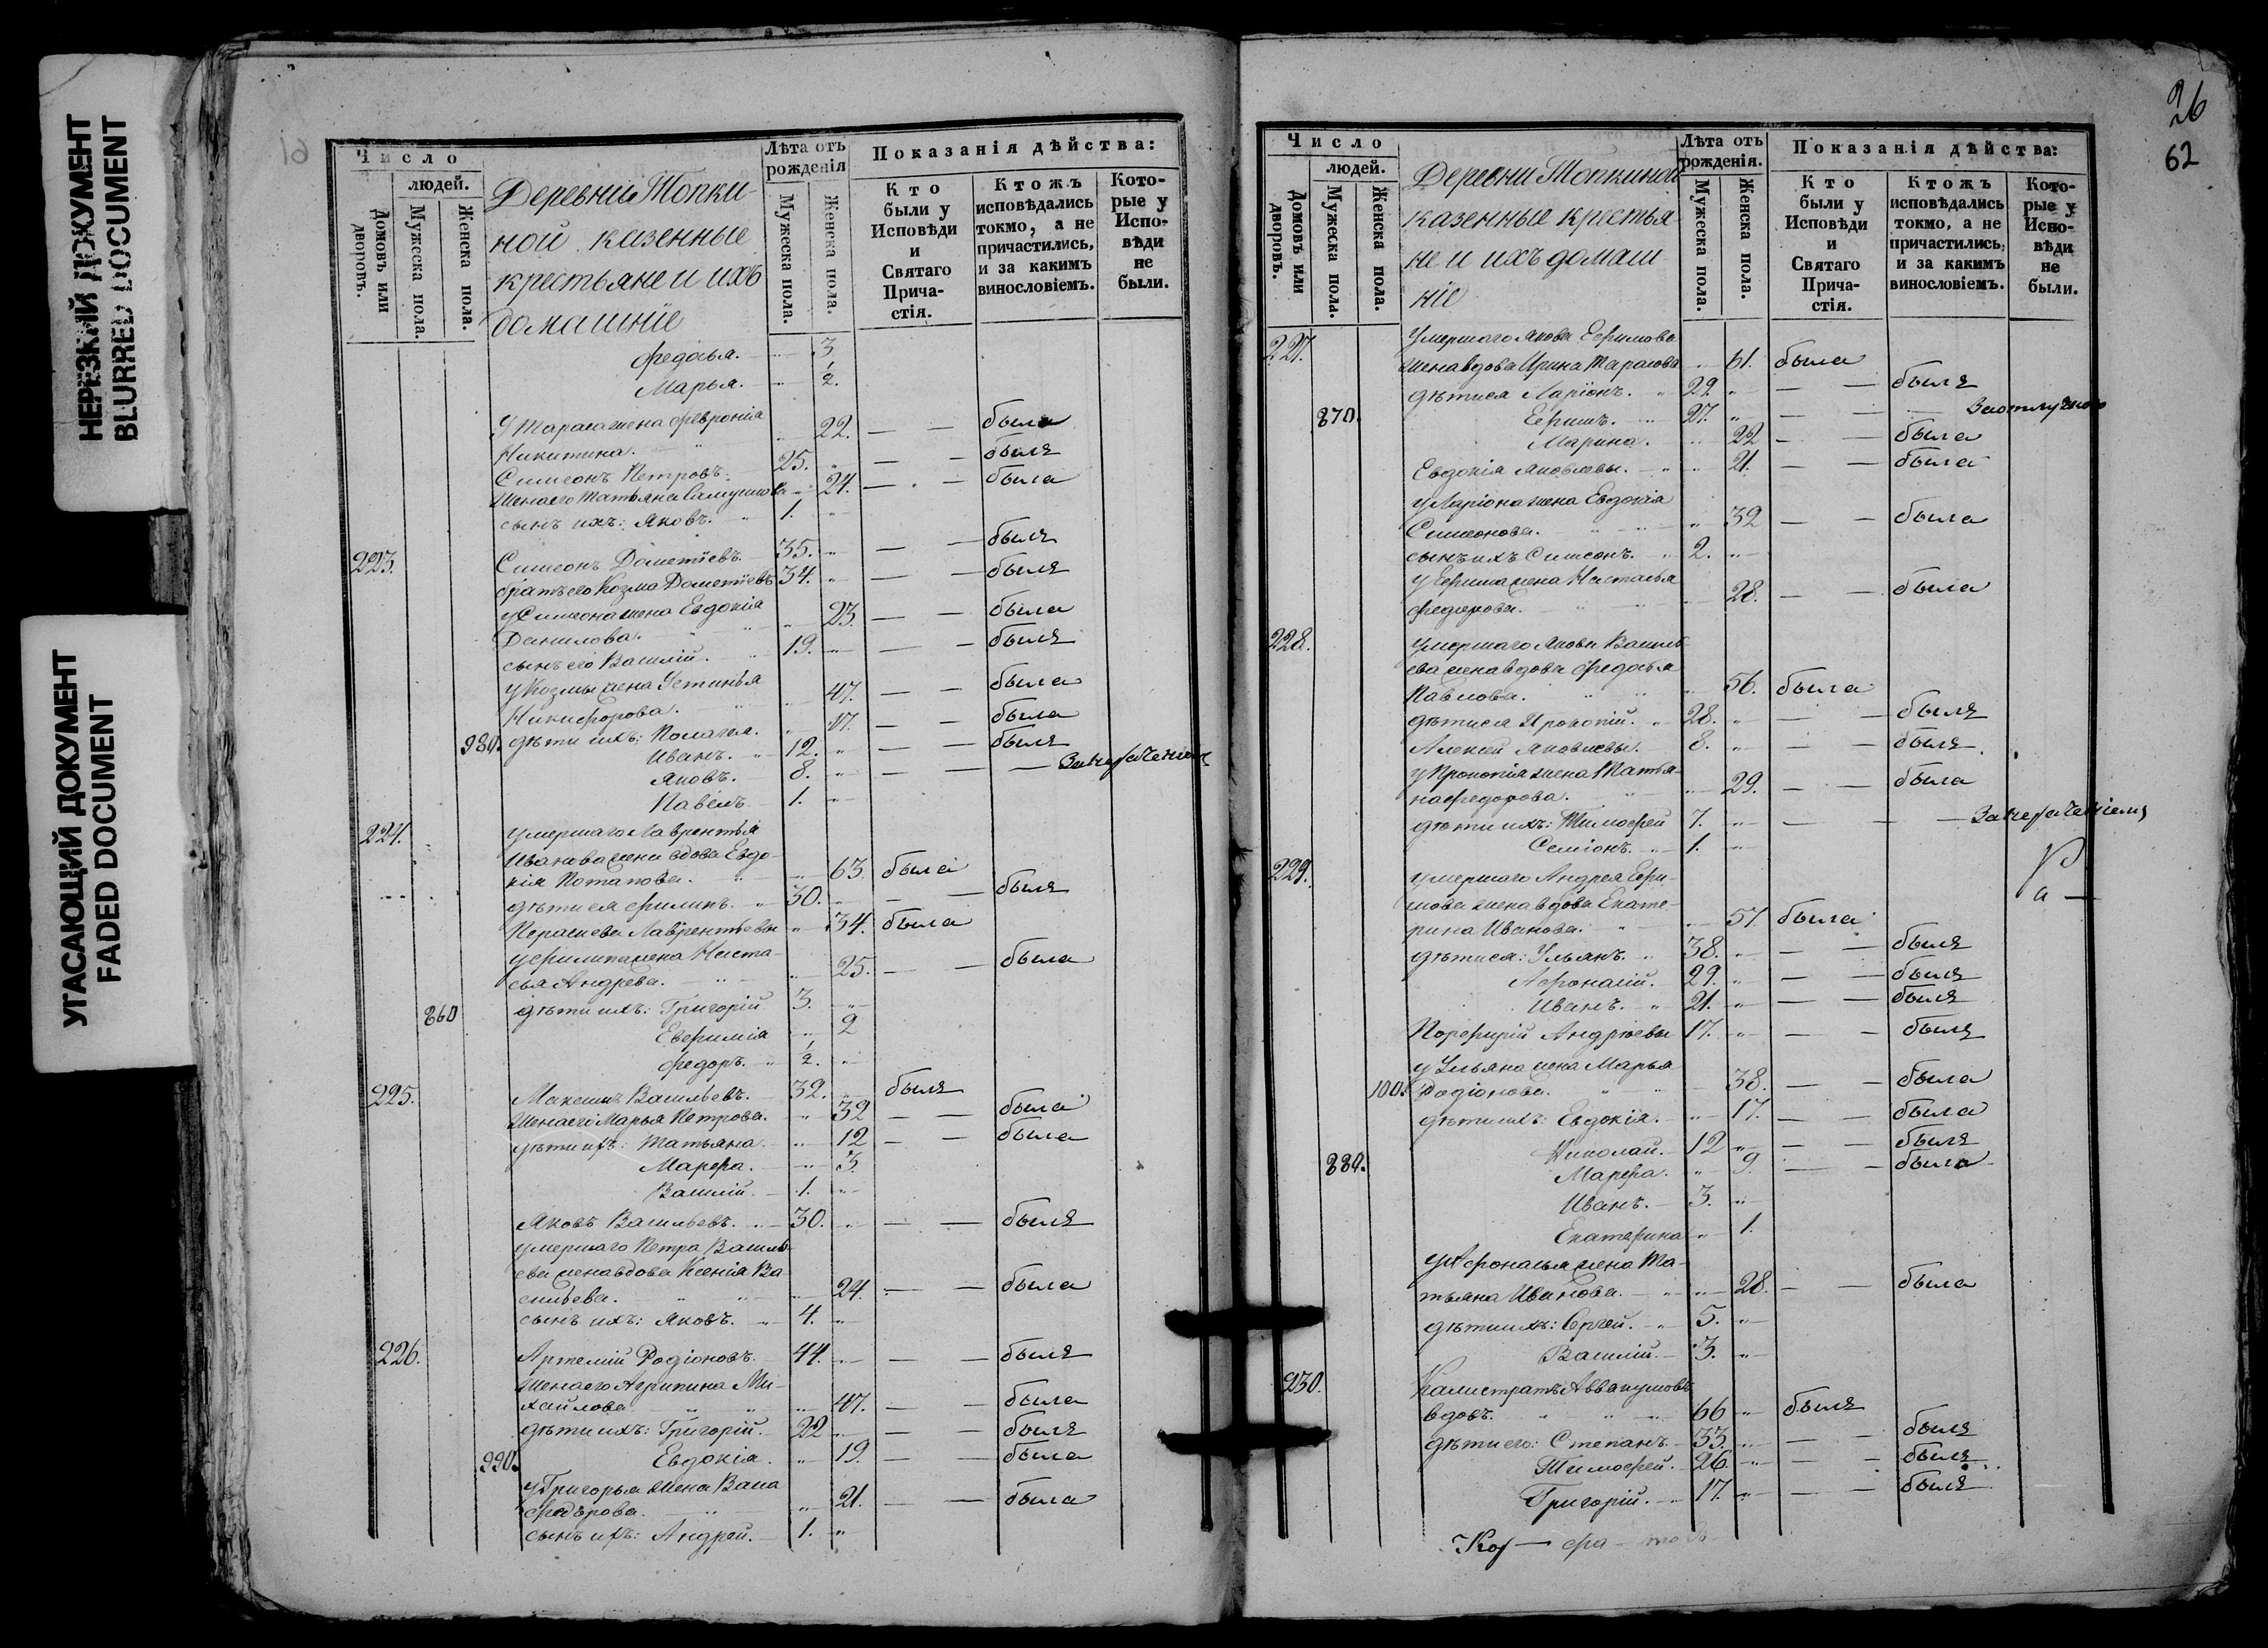 НЕРЕЗКИЙ ДОКУМЕНТ
BLURRED DOCUMENT
УГАСАЮЩИЙ ДОКУМЕНТ
FADED DOCUMENT
Число
людей.
Домовъ или дворовъ.
Мужеска пола.
Женска пола.
Деревни Топки
ной казенные
крестьяне и ихъ
домашніе
Лѣта отъ рожденія
Мужеска пола.
Женска пола.
Показанія дѣйства:
Кто были у Исповѣди и Святаго Прича-стія.
Ктожъ исповѣдались токмо, а не причастились, и за какимъ винословіемъ.
Кото-рые у Испо-вѣди не были.
Федосья. 3
Марья. 1/2.
У Тараса жена Феврониія
Никитина. 22. — — была
Симеонъ Петровъ. 25. — — былъ
Жена его Татьяна Самуилова 24. — — была
сынъ ихъ: Яковъ. 1.
223. Симеонъ Дометіевъ. 35. — — былъ
братъ его Козма Дометіевъ 34. — — былъ
у Симеона жена Евдокія
Данилова. 23. — — была
сынъ его Василій. 19. — — былъ
у Козмы жена Устинья
Никифорова. 47. — — была
980. дѣти ихъ: Пелагея. 17. — — была
Иванъ. 12. — — былъ
Яковъ. 8. — — —
Павелъ. 1.
224. умершаго Лаврентья
Иванова жена вдова Евдо-
кія Потапова. 63. была
дѣти ея Филипъ. 30. — — былъ
Парасковья Лаврентьевы 34. была
у Филипа жена Наста-
сья Андрева. 25. — — была
860 дѣти ихъ: Григорій 3.
Евфимія 2
Федоръ. 1/2.
225. Максимъ Васильевъ. 32. былъ
Жена его Марья Петрова. 32 — — была
дѣти ихъ: Татьяна. 12 — — была
Марфа. 3
Василій. 1.
Яковъ Васильевъ. 30. — — былъ
умершаго Петра Василь-
ева жена вдова Ксенія Ва
сильева. 24. — — была
сынъ ихъ: Яковъ. 4.
226. Артемій Родіоновъ. 44. — — былъ
Жена его Агрипина Ми-
хайлова 47. — — была
дѣти ихъ: Григорій. 22 — — былъ
990. Евдокія. 19. — — была
у Григорья жена Васа
Федорова. 21. — — была
сынъ ихъ: Андрей. 1.
26
62
Число
людей.
Домовъ или дворовъ.
Мужеска пола.
Женска пола.
Деревни Топкиной
казенные крестья
не и ихъ домаш
ніе
Лѣта отъ рожденія.
Мужеска пола.
Женска пола.
Показанія дѣйства:
Кто были у Исповѣди и Святаго Прича-стія.
Ктожъ исповѣдались токмо, а не причастились, и за какимъ винословіемъ.
Кото-рые у Испо-вѣди не были.
227. Умершаго Якова Ефимова
жена вдова Ирина Тарасова 61. была
дѣти ея Ларіонъ. 29. — — былъ
870. Ефимъ. 27. — — —
Марина. 22 — — была
Евдокія Яковлевы. 21. — — была
у Ларіона жена Евдокія
Симеонова. 32 — — была
сынъ ихъ Симеонъ. 2.
у Ефима жена Настасья
Федорова. 28. — — была
228. умершаго Якова Василь
ева жена вдова Федосья
Павлова. 56. была
дѣти ея Прокопій. 28. — — былъ
Алексей Яковлевы. 8. — — былъ
у Прокопія жена Татья-
на Федорова. 29. — — была
дѣти ихъ: Тимофей 7. — — —
Семіонъ. 1.
229. умершаго Андрея Ефи-
мова жена вдова Екате-
рина Иванова. 57. была
дѣти ея: Ульянъ. 38. — — былъ
Афонасій. 29. — — былъ
Иванъ. 21. — — былъ
Порфирій Андрѣевы 17. — — былъ
у Ульяна жена Марья
Родіонова. 38. — — была
дѣти ихъ: Евдокія. 17. — — была
Николай. 12 — — былъ
880. Марфа. 9. — — была
Иванъ. 3.
Екатерина 1.
у Афонасья жена Та-
тьяна Иванова. 28. — — была
дѣти ихъ: Сергей. 5.
Василій. 3.
230. Калистратъ Аввакумовъ
вдовъ. 66 былъ
дѣти его: Степанъ. 33. — — былъ
Тимофей. 26. — — былъ
Григорій. 17. — — былъ